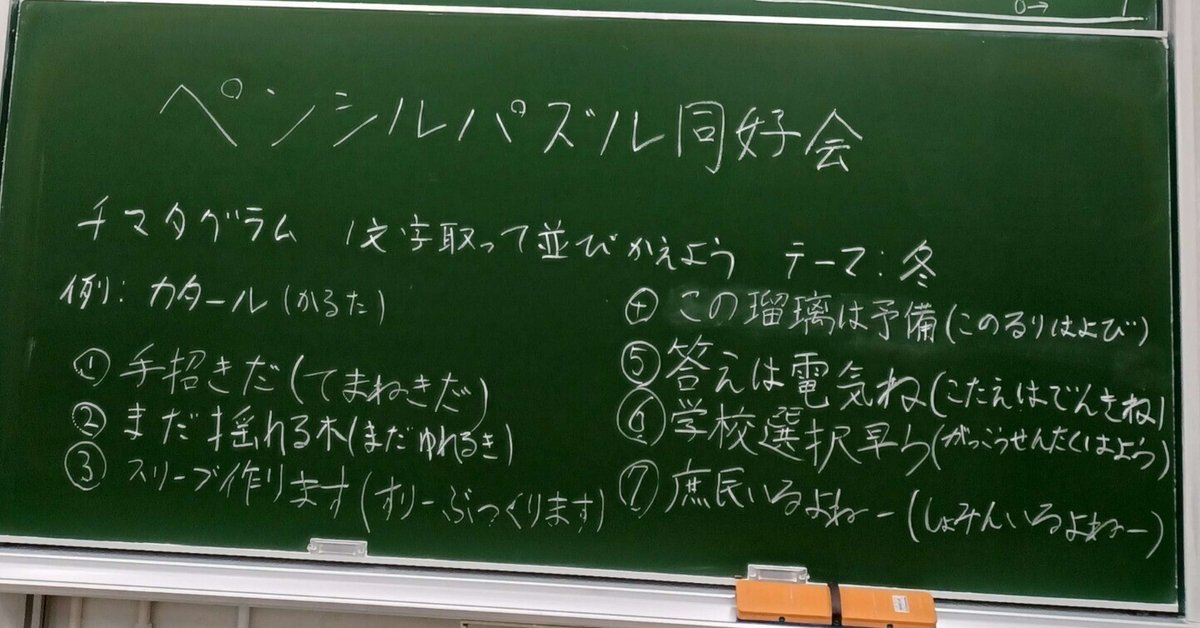 0→
ペンシルパズル同好会
チマタグラム 1文字取って並びかえよう テーマ:冬
例:カタール(かるた)
① 手招きだ(てまねきだ)
② まだ揺れる木(まだゆれるき)
③ スリーブ作ります(すりーぶつくります)
④ この瑠璃は予備(このるりはよび)
⑤ 答えは電気ね(こたえはでんきね)
⑥ 学校選択早う(がっこうせんたくはよう)
⑦ 庶民いるよねー(しょみんいるよねー)